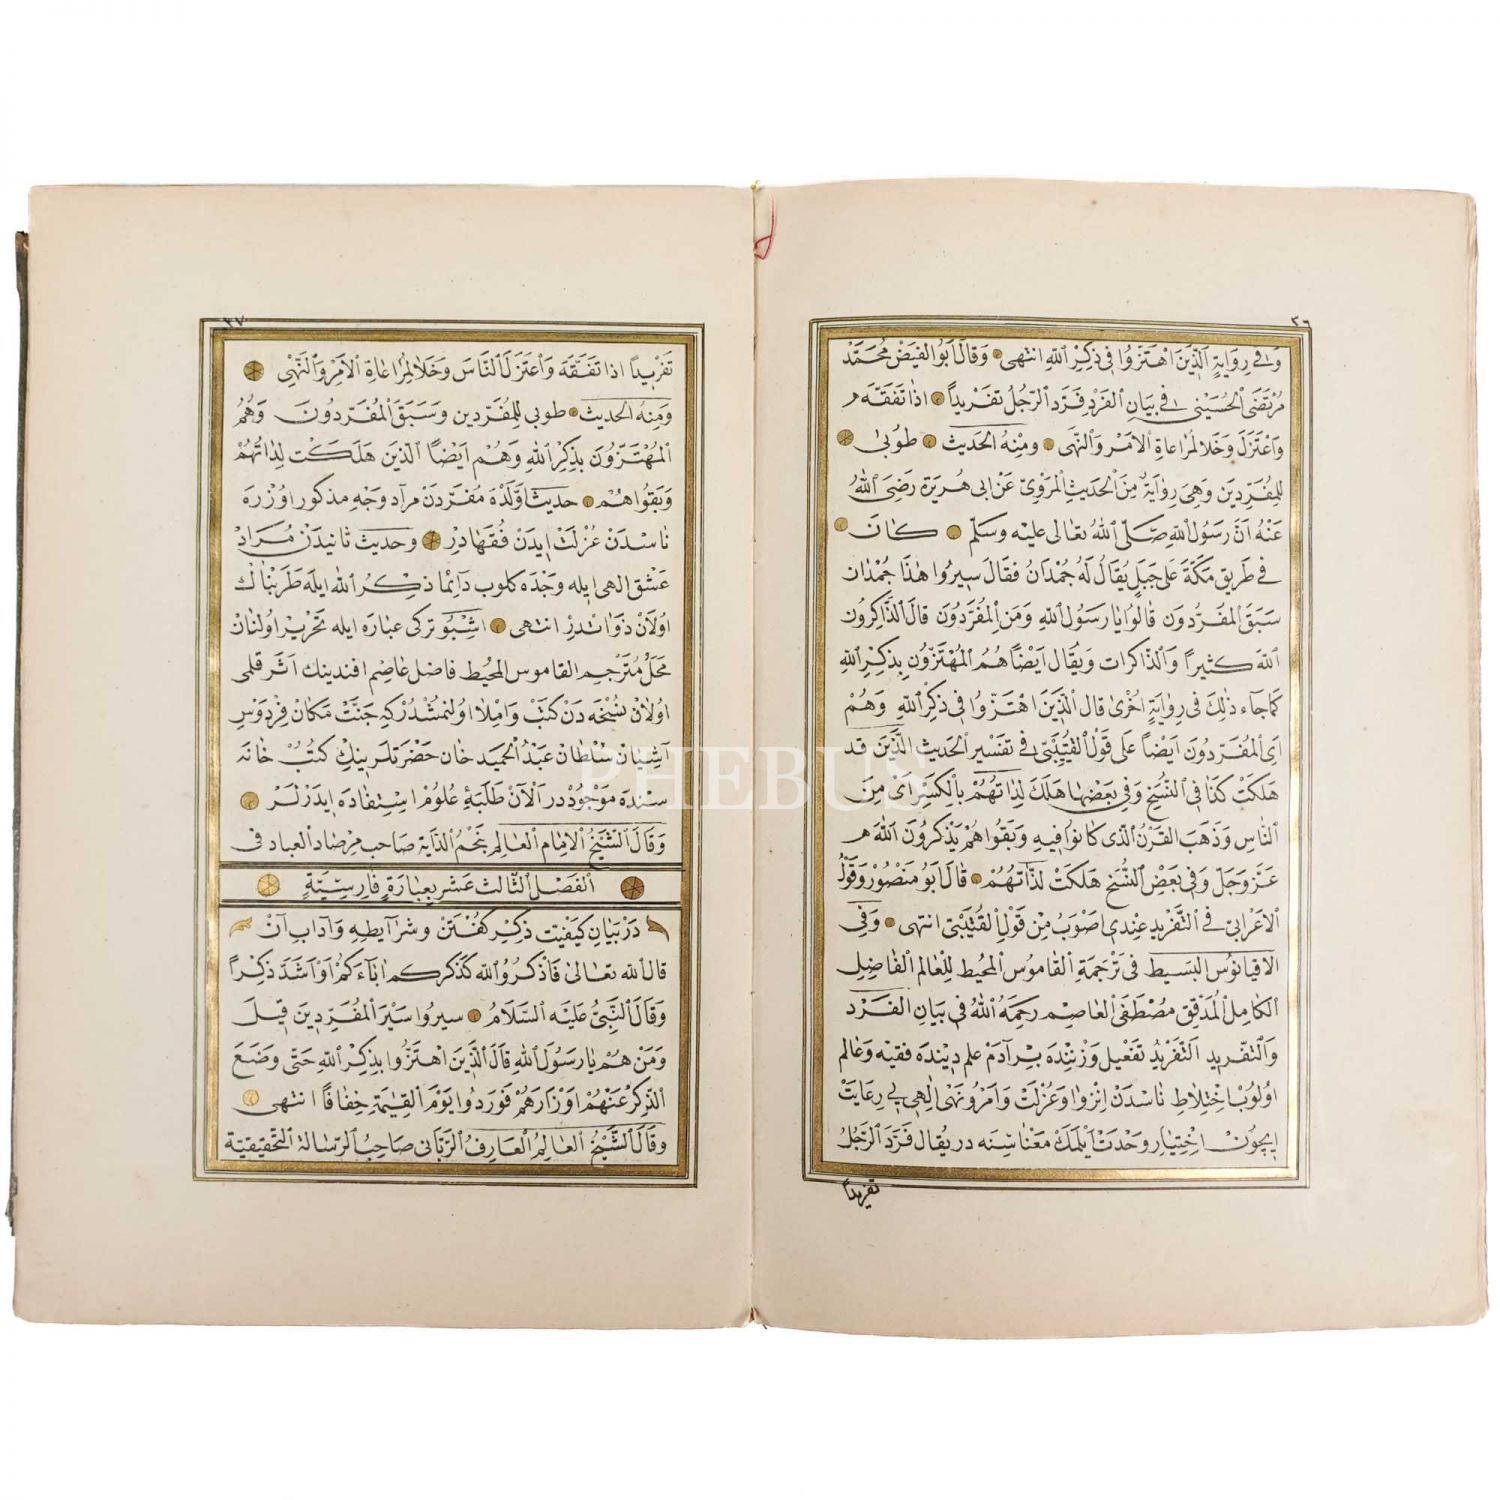 ٣٦
وفي رواية الذين اهتزوا في ذكر الله انتهى وقال ابو الفيض محمد
مرتضى الحسيني في بيان الفرد فرد الرجل تفريدا اذا تفقه
واعتزل وخلا لمراعاة الامر والنهى ومنه الحديث طوبى
للمفردين وهى رواية من الحديث المروى عن ابى هريرة رضى الله
عنه ان رسول الله صلى الله تعالى عليه وسلم كان
في طريق مكة على جبل يقال له جمدان فقال سيروا هذا جمدان
سبق المفردون قالوا يا رسول الله ومن المفردون قال الذاكرون
الله كثيرا والذاكرات ويقال ايضا هم المهتزون بذكر الله
كما جاء ذلك في رواية اخرى قال الذين اهتزوا في ذكر الله وهم
اى المفردون ايضا على قول القتيبى في تفسير الحديث الذين قد
هلكت كذا في النسخ وفي بعضها هلك لذاتهم بالكسر اى من
الناس وذهب القرن الذى كانوا فيه وبقوا هم يذكرون الله
عز وجل وفي بعض النسخ هلكت لذاتهم قال ابو منصور وقول
الاعرابى في التفريد عندى اصوب من قول القتيبى انتهى وفي
الاقيانوس البسيط في ترجمة القاموس المحيط للعالم الفاضل
الكامل المدقق مصطفى العاصم رحمه الله في بيان الفرد
والتفريد التفريد تفعيل وزننده بر آدم علم دينده فقيه وعالم
اولوب اختلاط ناسدن انزوا وعزلت وامر ونهى الهى يى رعايت
ايچون اختيار وحدت ايلمك معناسنه در يقال فرد الرجل
تفريدا
٣٧
تفريدا اذا تفقه واعتزل الناس وخلا لمراعاة الامر والنهى
ومنه الحديث طوبى للمفردين وسبق المفردون وهم
المهتزون بذكر الله وهم ايضا الذين هلكت لذاتهم
وبقوا هم حديث اولده مفردن مراد وجه مذكور اوزره
ناسدن عزلت ايدن فقهادر وحديث ثانيدن مراد
عشق الهى ايله وجده كلوب دائما ذكر الله ايله طربناك
اولان ذواتدر انتهى اشبو تركى عباره ايله تحرير اولنان
محل مترجم القاموس المحيط فاضل عاصم افندينك اثر قلمى
اولان نسخه دن كتب واملا اولنمشدر كه جنت مكان فردوس
آشيان سلطان عبد الحميد خان حضرتلرينك كتب خانه
سنده موجوددر الآن طلبهٔ علوم استفاده ايدرلر
وقال الشيخ الامام العالم نجم الداية صاحب مرصاد العباد في
الفصل الثالث عشر بعبارة فارسية
در بيان كيفيت ذكر كفتن وشرآيطه وآداب آن
قال الله تعالى فاذكروا الله كذكركم اباءكم او اشد ذكرا
وقال النبى عليه السلام سيروا سير المفردين قيل
ومن هم يا رسول الله قال الذين اهتزوا بذكر الله حتى وضع
الذكر عنهم اوزارهم فوردوا يوم القيمة خفافا انتهى
وقال الشيخ العالم العارف الربانى صاحب الرسالة التحقيقية
PHEBUS